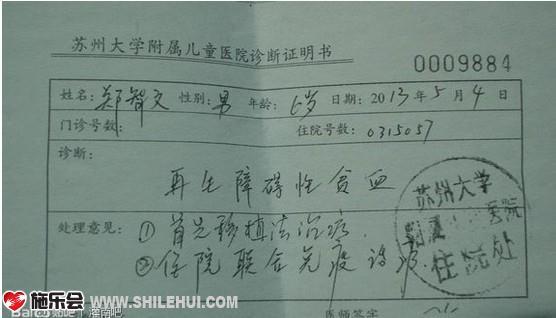 苏州大学附属儿童医院诊断证明书
0009884
姓名: 郑智文 性别: 男 年龄: 6岁 日期: 2013年5月4日
门诊号数: 住院号数: 0315057
诊断:
再生障碍性贫血
处理意见: ①首先移植法治疗.
②住院联合免疫治疗
苏州大学
附属 医院
住院处
医师签字
施乐会 WWW.SHILEHUI.COM
Bai 贴吧 灌南吧